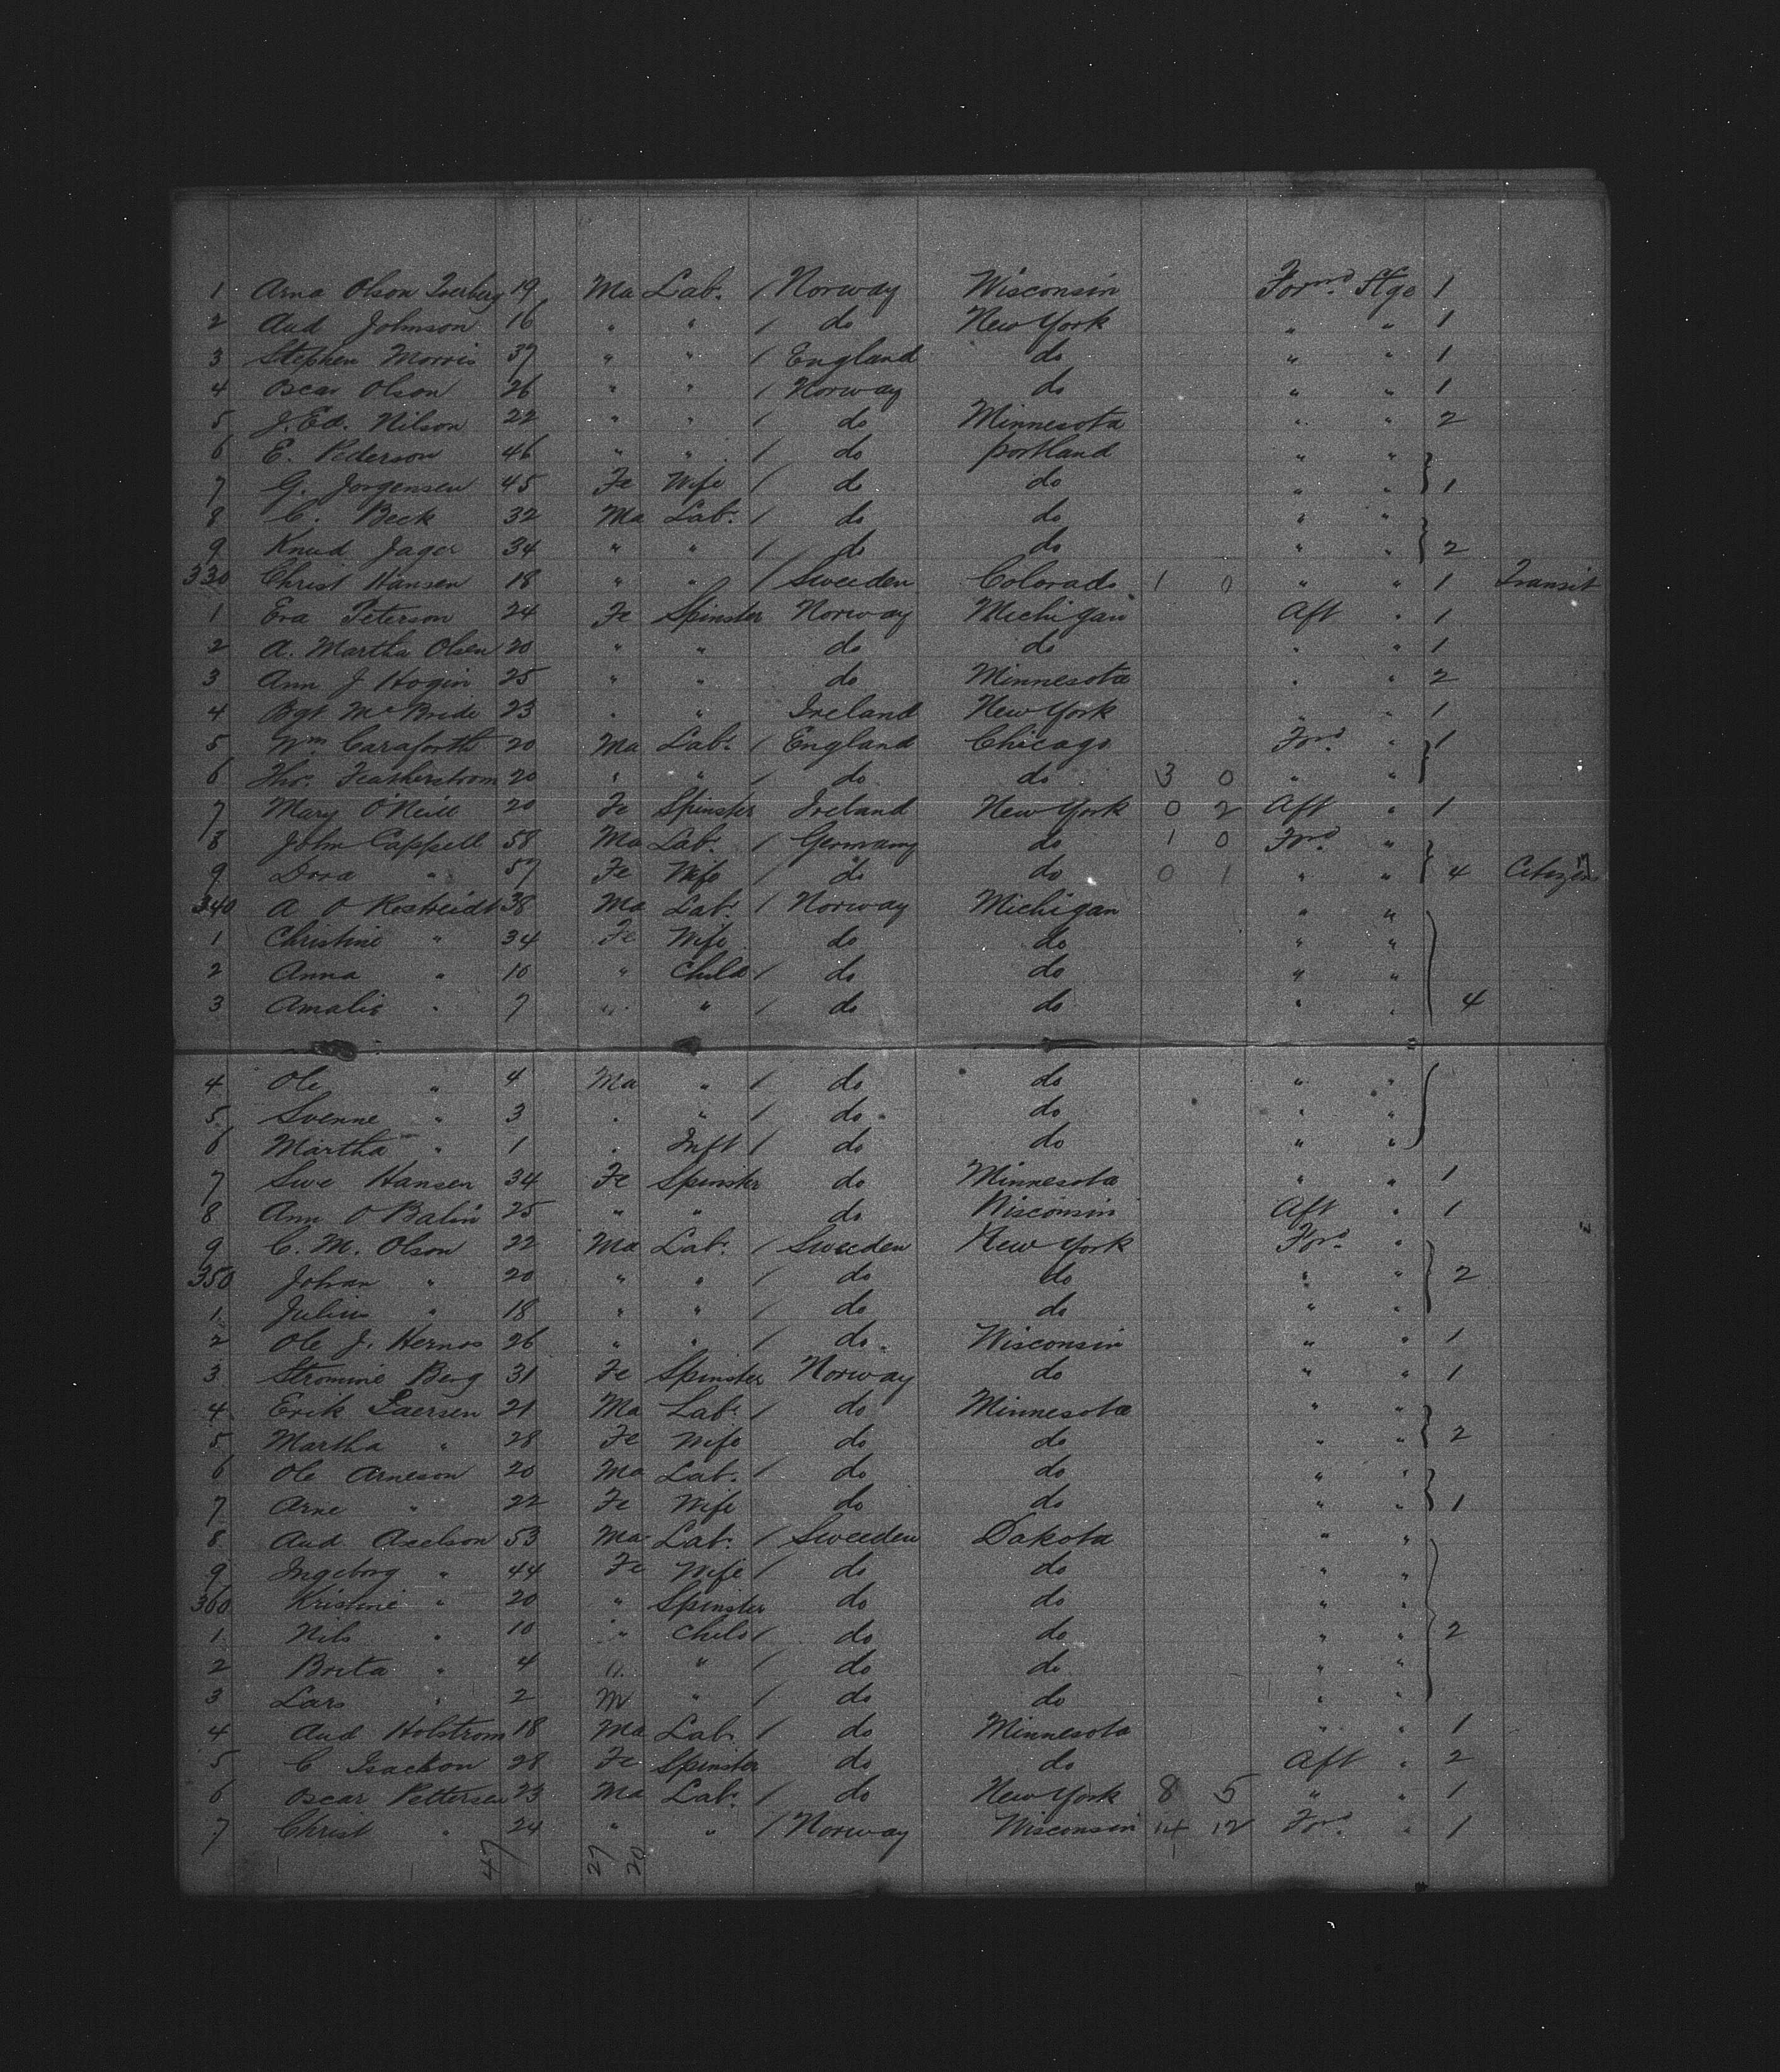 1 Arna Olson Tverberg 19 Ma Lab. / Norway Wisconsin Forwd Stge 1
2 And Johnson 16 " " / do New York " " 1
3 Stephen Morris 37 " " / England do " " 1
4 Oscar Olson 26 " " / Norway do " " 1
5 J. Ed. Nilson 22 " " / do Minnesota " " 2
6 E. Pederson 46 " " / do portland " "
7 G. Jorgensen 45 Fe Wife / do do " " } 1
8 C. Beck 32 Ma Lab. / do do " "
9 Knud Jager 34 " " / do do " " } 2
330 Christ Hansen 18 " " / Sweeden Colorado 1 0 " " 1 Transit
1 Eva Peterson 24 Fe Spinster Norway Michigan Aft " 1
2 A. Martha Olsen 20 " " do do " " 1
3 Ann J Hogin 25 " " do Minnesota " " 2
4 Bgt McBride 23 " " Ireland New York " " 1
5 Wm Caraforth 20 Ma Lab. / England Chicago Ford " } 1
6 Thos. Featherstrom 20 " " / do do 3 0 " "
7 Mary O'Neill 20 Fe Spinster Ireland New York 0 2 Aft " 1
8 John Cappell 58 Ma Lab. / Germany do 1 0 Ford "
9 Dora " 57 Fe Wife / do do 0 1 " " } 4 Citizens
340 A O 38 Ma Lab. / Norway Michigan " "
1 Christine " 34 Fe Wife do do " "
2 Anna " 10 " Child / do do " "
3 Amalie " 7 " " / do do " " 4
4 Ole " 4 Ma " / do do " "
5 Svenne " 3 " " / do do " "
6 Martha " 1 " Inft / do do " "
7 Sive Hansen 34 Fe Spinster do Minnesota " " 1
8 Ann O Balin 25 " " do Wisconsin Aft " 1
9 C. M. Olson 22 Ma Lab. / Sweeden New York Ford "
350 Johan " 20 " " / do do " " } 2
1 Julius " 18 " " / do do " "
2 Ole J. Hernos 26 " " / do Wisconsin " " 1
3 Stromine Berg 31 Fe Spinster Norway do " " 1
4 Erik Laersen 21 Ma Lab. / do Minnesota " "
5 Martha " 28 Fe Wife do do " " } 2
6 Ole Arneson 20 Ma Lab. / do do " "
7 Arne " 22 Fe Wife do do " " } 1
8 And Axelson 53 Ma Lab. / Sweeden Dakota " "
9 Ingeborg " 44 Fe Wife / do do " "
360 Kristine " 20 " Spinster do do " "
1 Nils " 10 " Child / do do " " } 2
2 Brita " 4 " " / do do " "
3 Lars " 2 M " / do do " "
4 And Holstrom 18 Ma Lab. / do Minnesota " " 1
5 C Isackson 28 Fe Spinster do do Aft " 2
6 Oscar Pettersen 23 Ma Lab. / do New York 8 5 " " 1
7 Christ " 24 " " / Norway Wisconsin 14 12 For. " 1
47 27 20